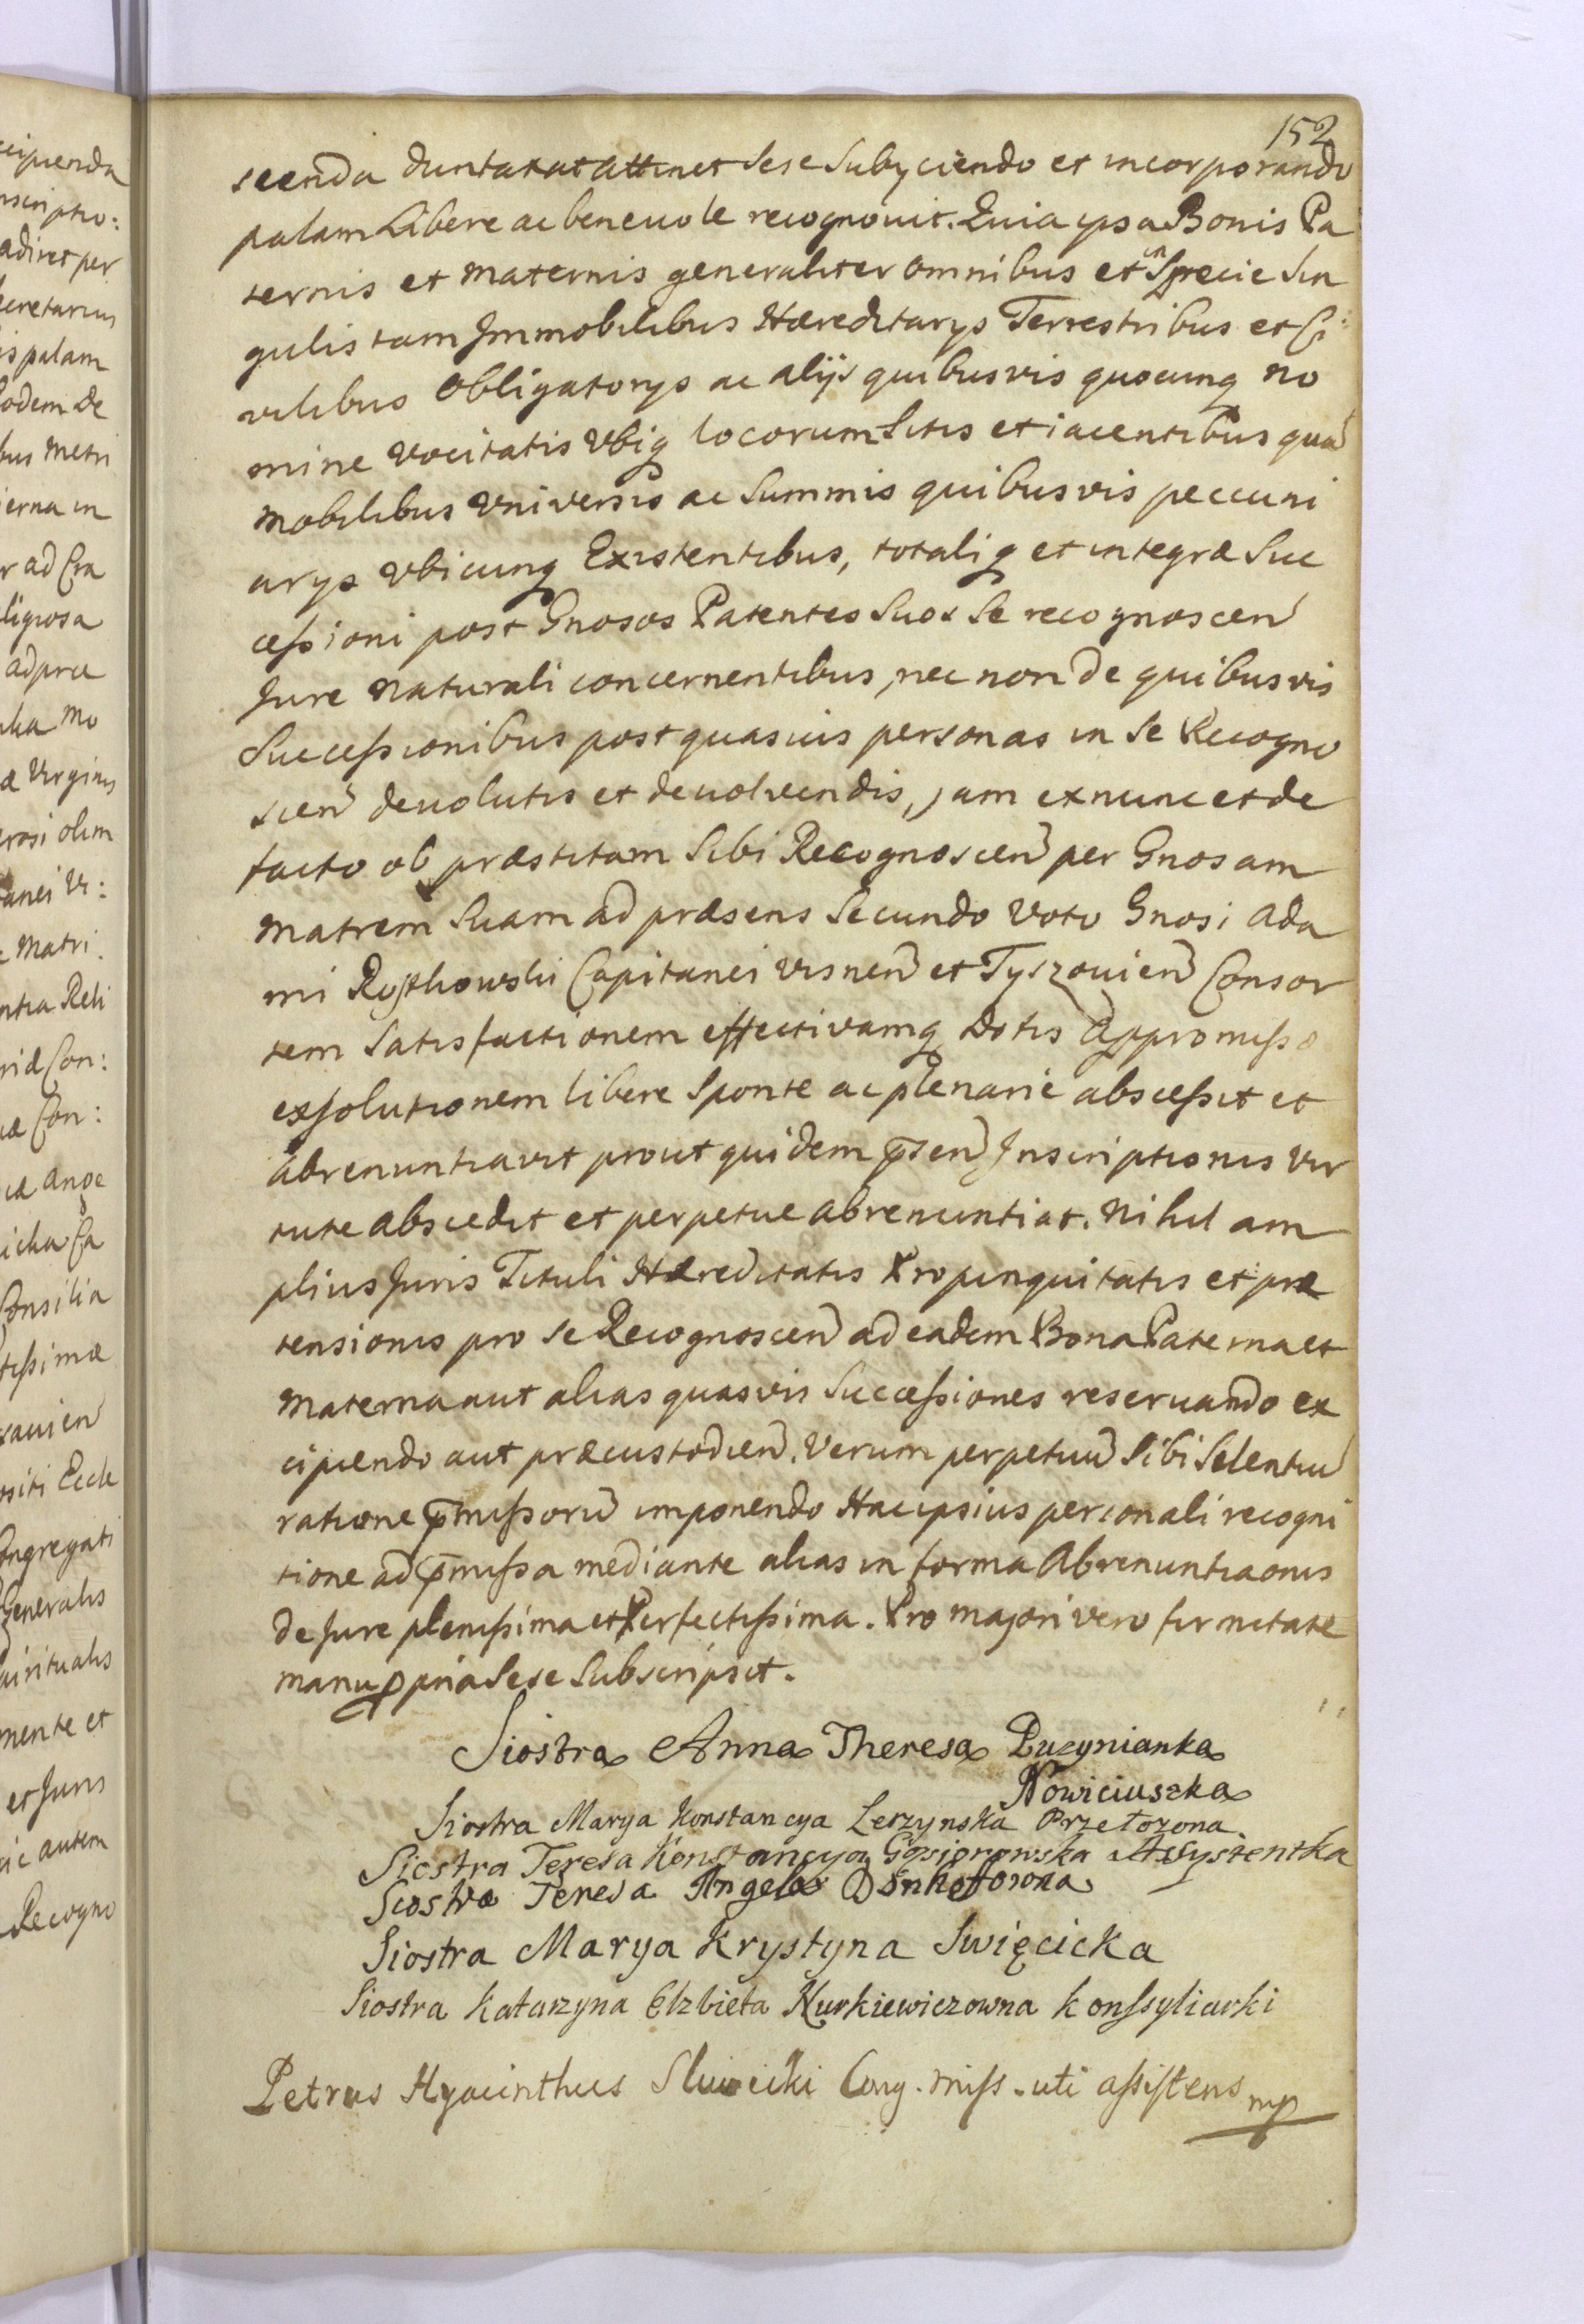 152
scenda duntaxat attinet sese subyciendo et incorporando
palam Libere ac beneuole recognouit. Quia ipsa Bonis Pa
ternis et maternis generaliter omnibus et in Specie Sin
gulis tam Immobilibus Hæreditarys Terrestribus et Ci
vilibus obligatorys ac alijs quibusvis quocunq no
mine vocitatis Vbiq locorum Sitis et iacentibus qua
mobilibus Vniversis ac Summis quibusvis peccuni
arys vbicunq Existentibus, totaliq et integræ Suc
cessioni post Gnosos Parentes Suos Se recognoscen
Jure naturali concernentibus, nec non de quibusvis
Successionibus post quasuis personas in Se Recogno
scen deuolutis et deuoluendis, jam ex nunc et de
facto ob præstitam Sibi Recognoscen per Gnosam
matrem Suam ad præsens Secundo Voto Gnosi Ada
mi Capitanei Visnen et Tyszouien Consor
tem Satisfactionem effectivamq Dotis appromissæ
exsolutionem libere Sponte ac plenarie abscessit et
abrenuntiavit prout quidem psen Inscriptionis Vir
tute abscedit et perpetue abrenuntiat. Nihil am
plius Juris Tituli Hæreditatis Propinquitatis et præ
tensionis pro se Recognoscen ad eadem Bona Paterna et
Materna aut alias quasvis Successiones reseruando ex
cipiendo aut præcustodien. Verum perpetuu Sibi Silentiu
ratione pmissoru imponendo Hac ipsius personali recogni
tione ad pmissa mediante alias in forma Abrenuntiaonis
de Jure plenissima et Perfectissima. Pro majori vero firmitate
manu ppria Sese Subscripsit.
Siostra Anna Theresa Puzynianka
Nowiciuszka
Siostra Marya Konstancya Leszynska Przełozona
Siostra Teresa Konstancya Gąsiorowska Asystentka
Siostra Teresa Angela Denhoffowna
Siostra Marya Krystyna Swięcicka
Siostra Katarzyna Elzbieta Kurkiewiczowna konssyliarki
Petrus Hyacinthus Sliwicki Cong. miss. uti assistens mp